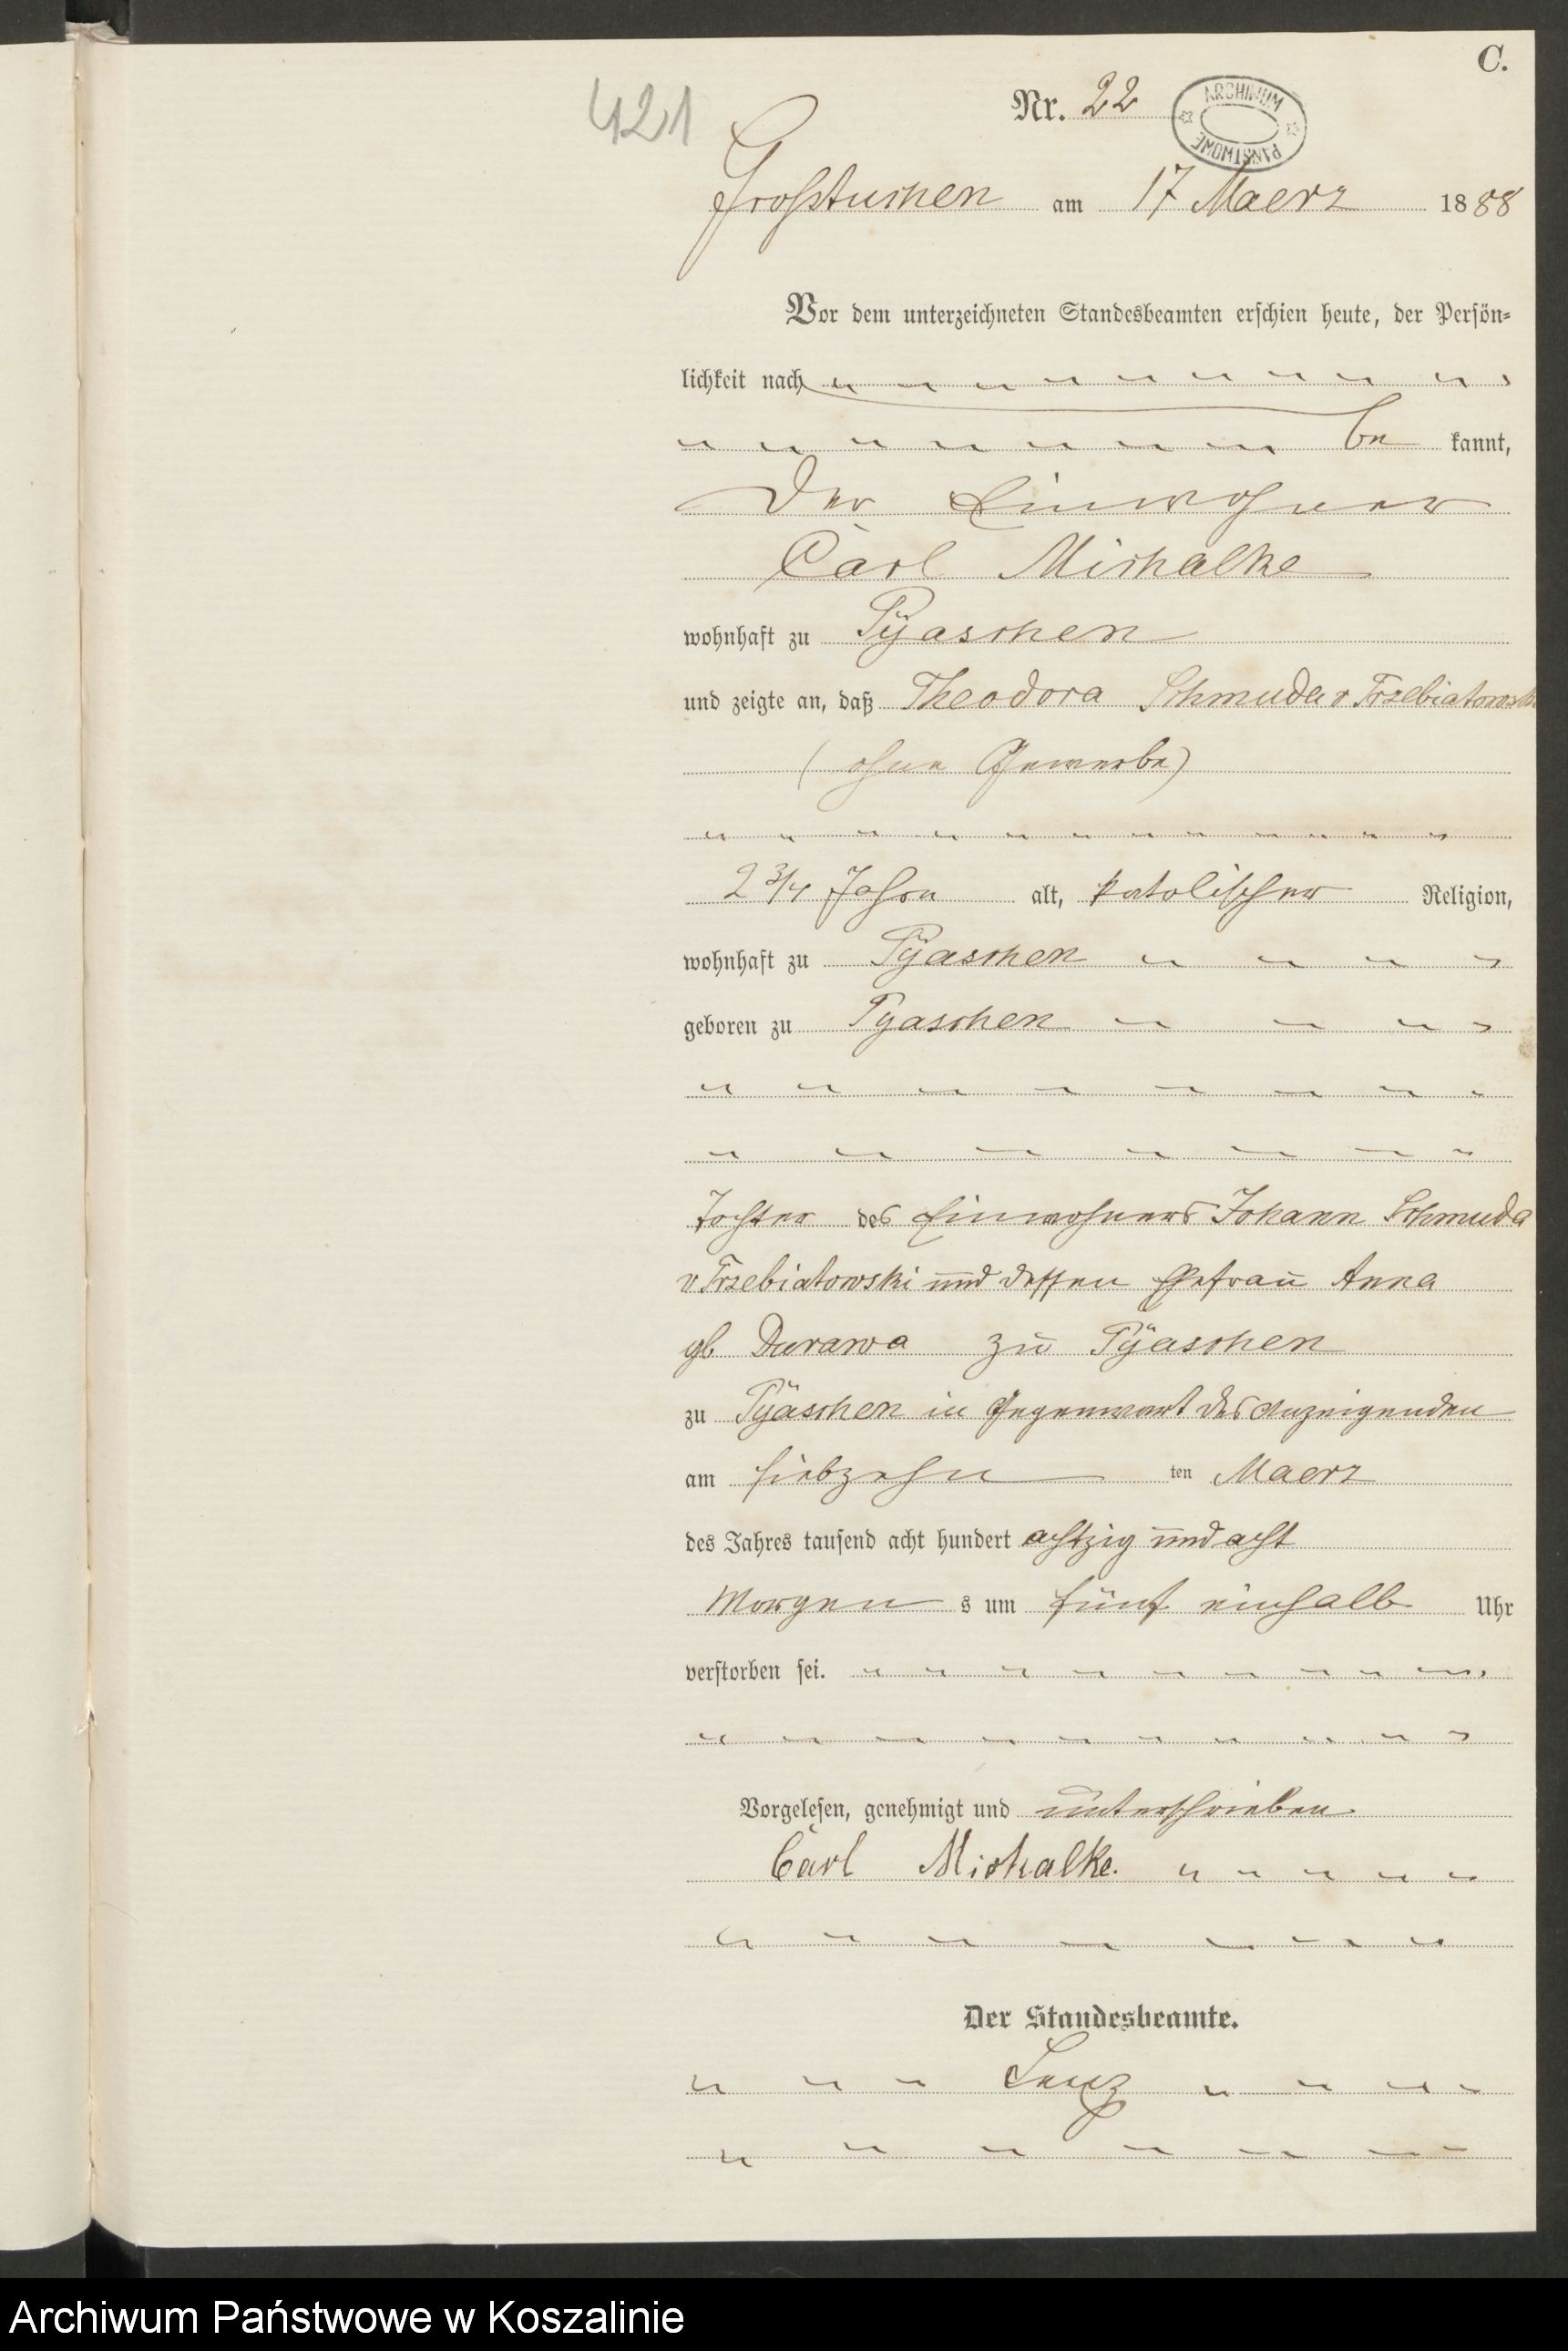 C.
421
Nr. 22
ARCHIWUM PAŃSTWOWE
Großtuchen am 17 Maerz 1888
Vor dem unterzeichneten Standesbeamten erschien heute, der Persön-
lichkeit nach
be kannt,
der Einwohner
Carl Mischalke
wohnhaft zu Pÿaschen
und zeigte an, daß Theodora Schmuda v Trzebiatowski
(ohne Gewerbe)
2 3/4 Jahre alt, katolischer Religion,
wohnhaft zu Pÿaschen
geboren zu Pyaschen
Tochter des Einwohners Johann Schmuda
v Trzebiatowski und dessen Ehefrau Anna
gb Durawa zu Pÿaschen
zu Pÿaschen in Gegenwart des Anzeigenden
am siebzehn ten Maerz
des Jahres tausend acht hundert achtzig und acht
Morgen s um fünf einhalb Uhr
verstorben sei.
Vorgelesen, genehmigt und unterschrieben
Carl Mischalke.
Der Standesbeamte.
Lenz
Archiwum Państwowe w Koszalinie